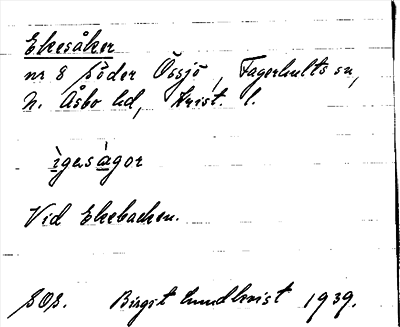 Ekesåker
nr 8 söder Össjö, Fagerhults sn,
N. Åsbo hd, Krist. l.
ìgasàgor
Vid Ekebacken.
SOS. Birgit Lundkvist 1939.